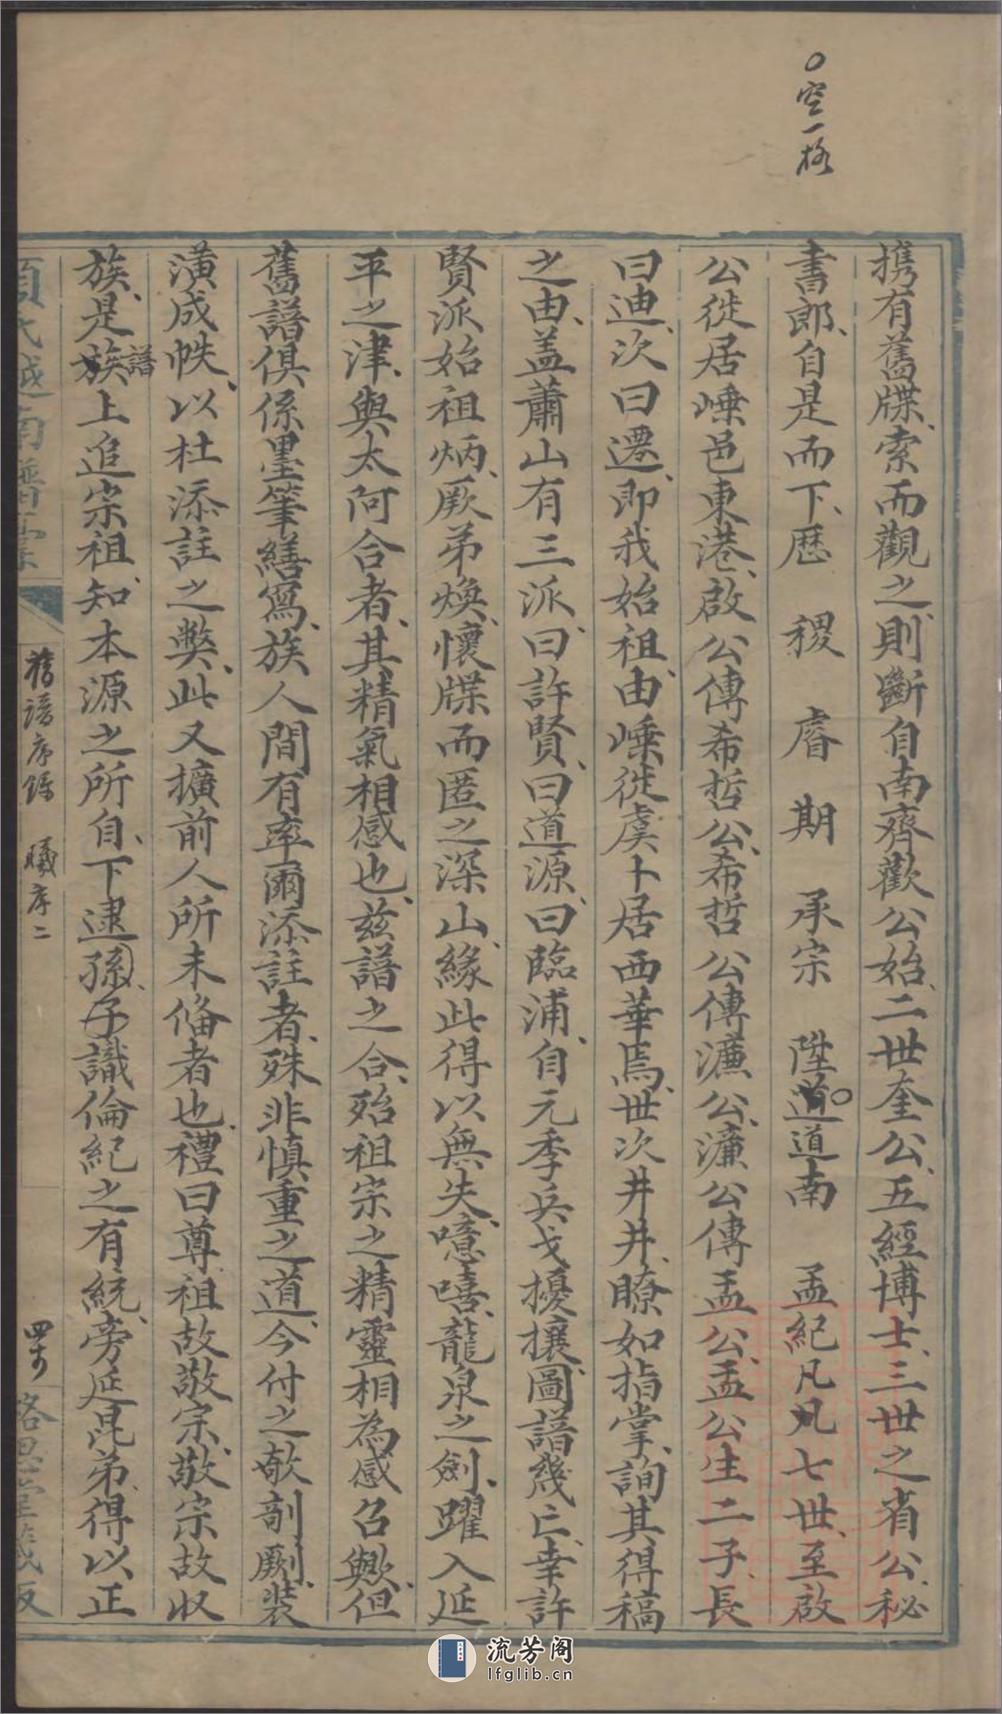 空一格
携有舊牒、索而觀之、則斷自南齊歡公始、二世奎公、五經博士、三世之省公秘
書郎、自是而下、歷 稷 睿 期 承宗 陞道道南 孟紀凡凡七世、至啟
公徙居嵊邑東港、啟公傳希哲公、希哲公傳濂公、濂公傳孟公、孟公生二子、長
曰迪、次曰遷、即我始祖、由嵊徙虞卜居西華焉、世次井井、瞭如指掌、詢其得稿
之由、盖蕭山有三派、曰許賢、曰道源、曰臨浦、自元季兵戈擾攘圖譜幾亡、幸許
賢派始祖炳、厥弟煥、懷牒而匿之深山、緣此得以無失、噫嘻、龍泉之劍、躍入延
平之津、與太阿合者、其精氣相感也、茲譜之合、殆祖宗之精靈相為感召歟、但
舊譜俱係墨筆繕寫、族人間有率爾添註者、殊非慎重之道、今付之欹剞劂、裝
潢成帙、以杜添註之獘、此又擴前人所未偹者也、禮曰尊祖故敬宗、敬宗故收
族、是族譜上追宗祖、知本源之所自、下逮孫子識倫紀之有統、旁延昆弟、得以正
舊譜序錄 曦序二
流芳阁
lfglib.cn